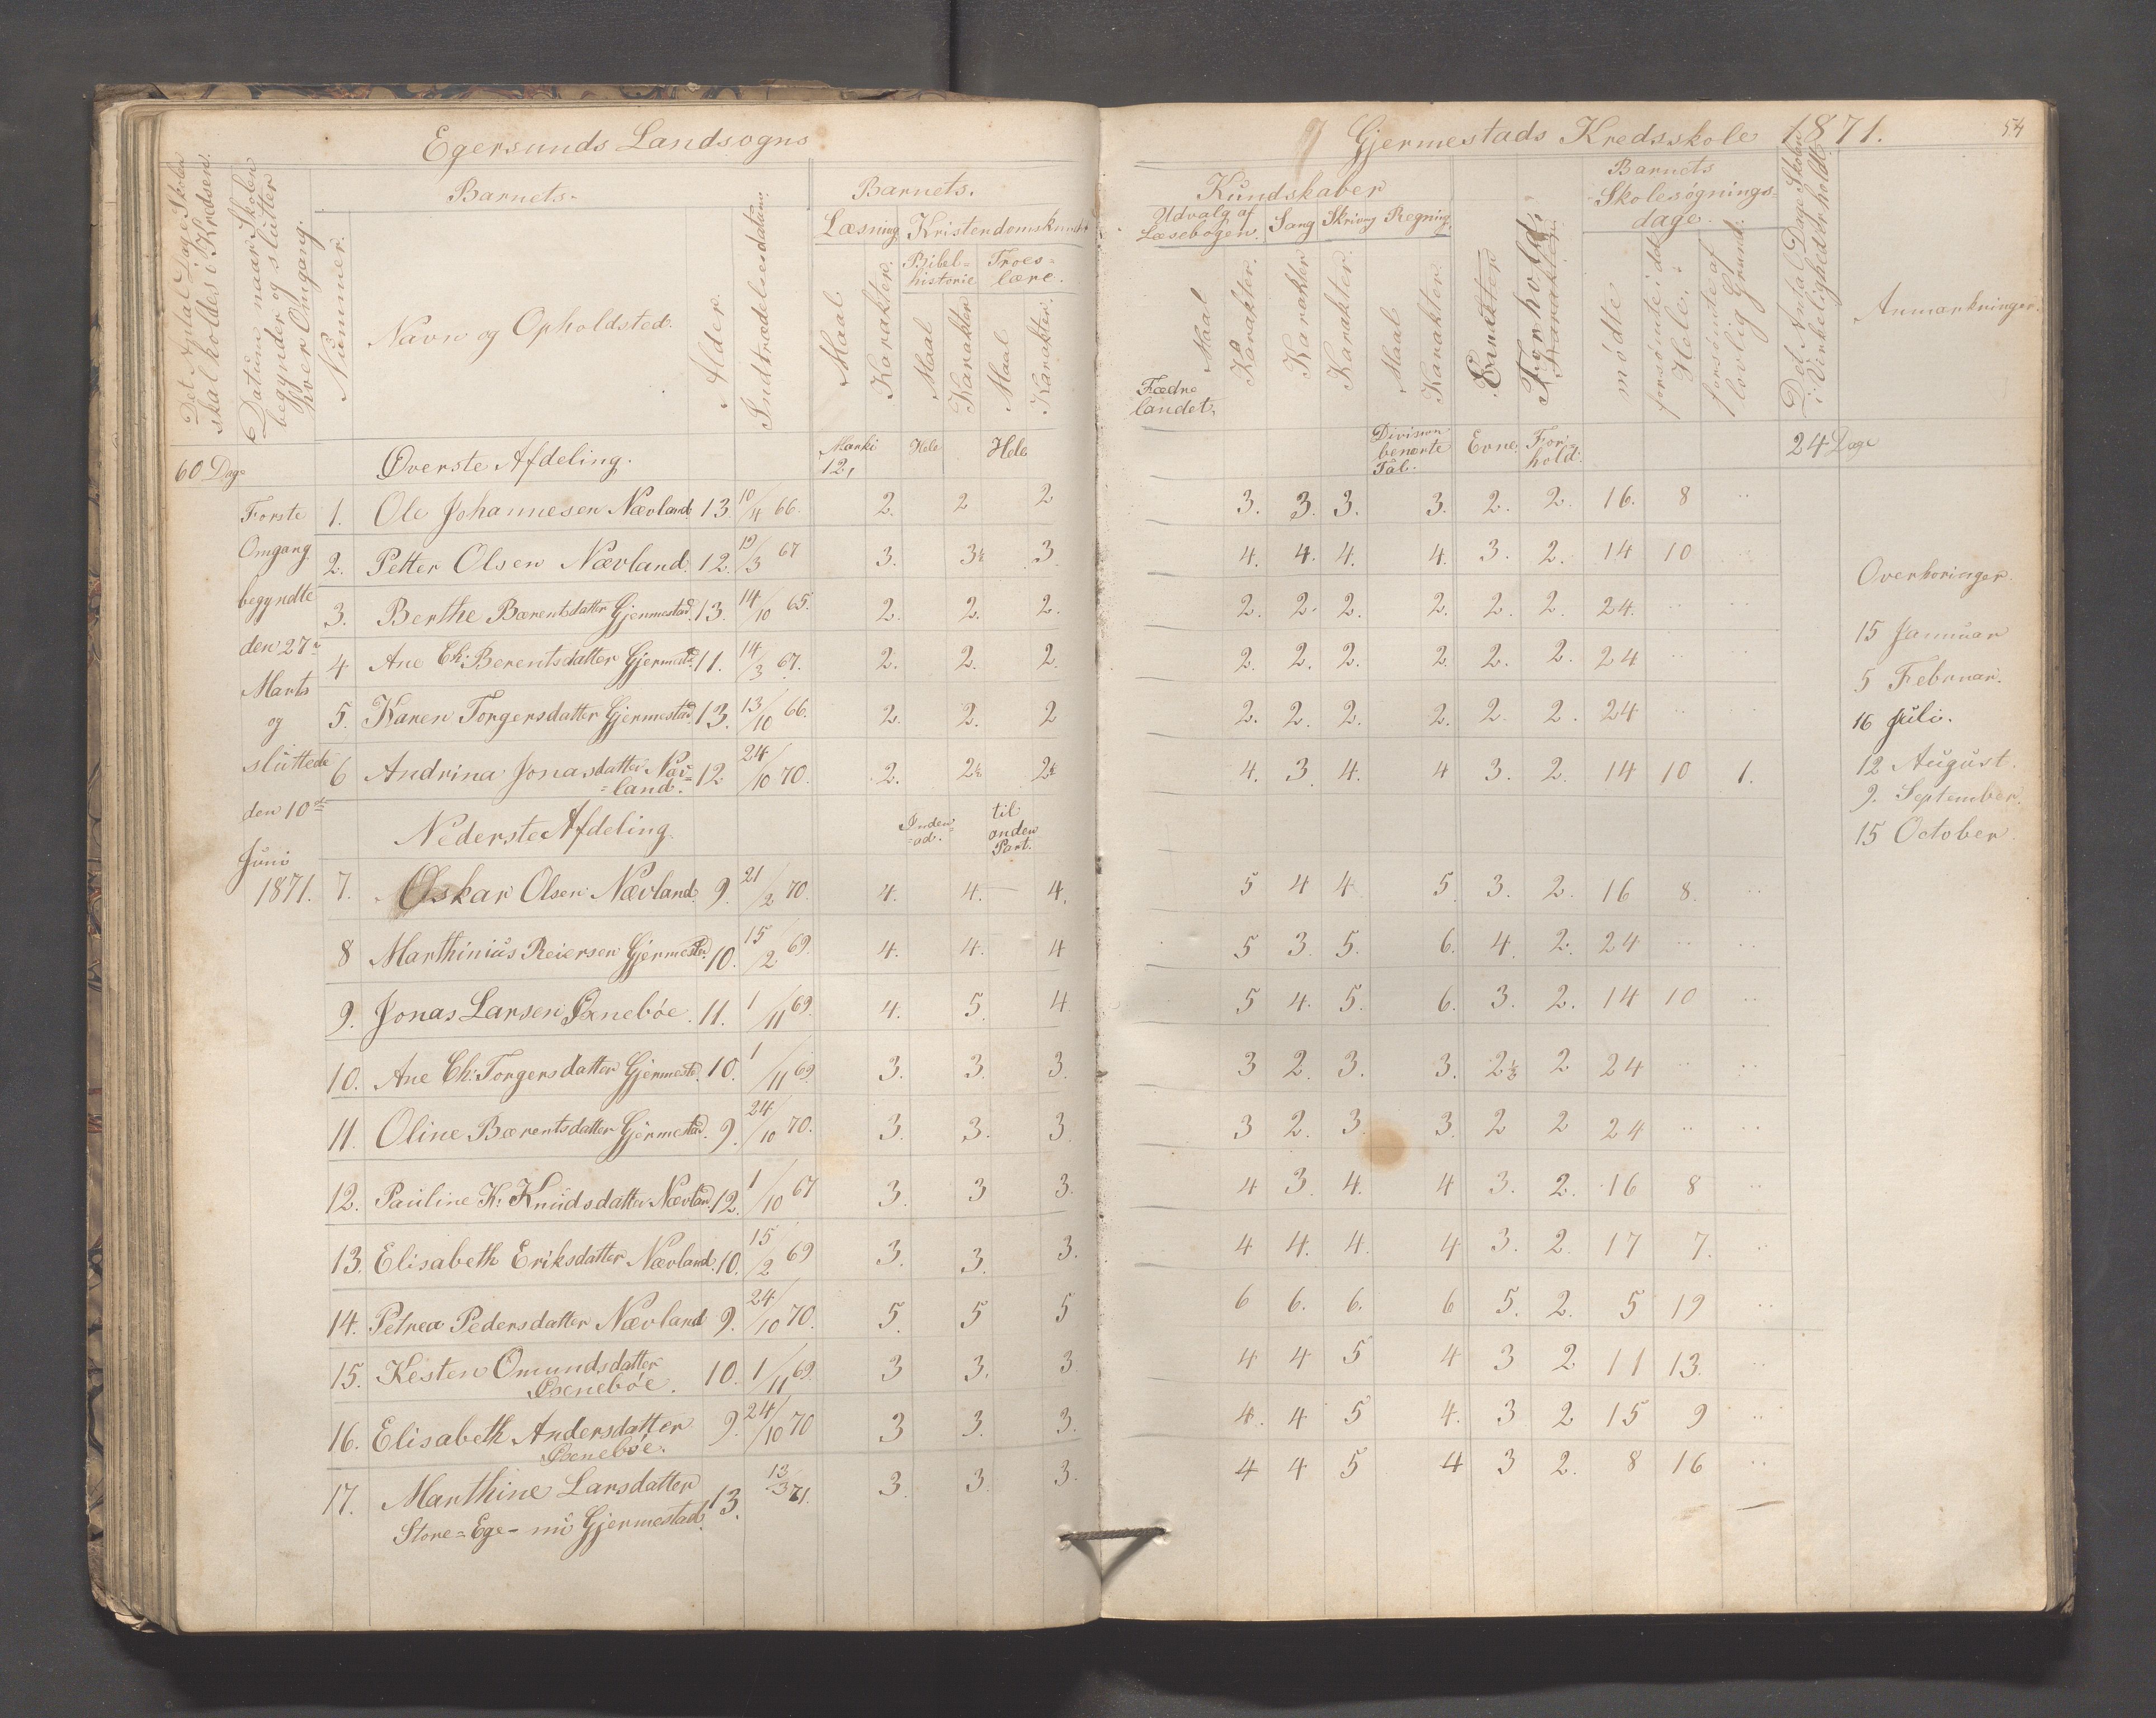 Egersunds Landsogns
Gjermestads Kredsskole 1871.
54
Det Antal Dage Skolen
skal holdes i Kredsen.
Datum naar Skolen
begynder og slutter
hver Omgang.
Barnets.
Nummer.
Navn og Opholdsted.
Alder.
Indtrædelsesdatum.
Barnets.
Læsning Kristendomskundsk
Bibel= Troes=
historie lære.
Maal
Karakter.
Maal
Karakter
Maal
Karakter.
Kundskaber
Udvalg af
Læsebogen. Sang Skrivng Regning
Maal
Karakter.
Karakter
Karakter.
Maal
Karakter.
Fædre
landet.
Forhold.
Barnets
Skolesøgnings=
dage.
mødte
forsømte i det
Hele.
forsømte af
lovlig Grund.
Det Antal Dage Skolen
i Virkelighed er holdt.
Anmærkninger.
60 Dage Øverste Afdeling. Marki 12, Hele Hele Division benævnte Tal. Evne. Forhold. 24 Dage
Første
Omgang
begyndte
den 27
Marts
og
sluttede
den 10de
Juni
1871.
1. Ole Johannesen Nævland. 13. 10/4 66. 2. 2 2 3. 3. 3. 3. 2. 2. 16. 8 ..
2. Petter Olsen Nævland. 12. 19/3 67 3. 3½ 3 4. 4. 4. 4. 3. 2. 14 10 ..
3. Berthe Bærentsdatter Gjermestad. 13. 14/10 65. 2. 2. 2. 2. 2. 2. 2. 2. 2. 24. .. ..
4 Ane Ch: Berentsdatter Gjermestd. 11. 14/3 67. 2. 2. 2. 2. 2. 2. 2. 2. 2. 24 .. ..
5. Karen Torgersdatter Gjermestad. 13. 13/10 66. 2. 2. 2 2. 2. 2. 2. 2. 2. 24 .. ..
6 Andrina Jonasdatter Næv=
=land. 12 24/10 70. 2. 2½ 2½ 4. 3 4. 4 3. 2. 14 10 1.
Nederste Afdeling. Inden=
=ad. til
anden
Part.
7. Oskar Olsen Nævland. 9. 21/2 70. 4. 4. 4. 5 4 4 5 3. 2. 16 8. ..
8 Marthinius Reiersen Gjermestad. 10. 15/2 69. 4. 4. 4 5 3. 5. 6. 4. 2. 24 .. ..
9. Jonas Larsen Øxnebøe. 11. 1/11 69. 4. 5. 4 5 4. 5. 6. 3. 2. 14 10 ..
10. Ane Ch: Torgersdatter Gjermestd. 10. 1/11 69. 3. 3. 3. 3 2. 3. 3. 2½ 2 24 .. ..
11. Oline Bærentsdatter Gjermestad. 9. 24/10 70. 3. 3. 3 3 2. 3. 3. 2 2 24 .. ..
12. Pauline K. Knudsdatter Nævland. 12. 1/10 67 3. 3 3. 4 3. 4. 4 3. 2. 16 8 ..
13. Elisabeth Eriksdatter Nævland. 10. 15/2 69 3. 3. 3. 4 4. 4. 4 3. 2. 17 7. ..
14. Petrea Pedersdatter Nævland 9. 24/10 70. 5. 5 5 6 6. 6. 6 5. 2. 5 19 ..
15. Kesten Omundsdatter
Øxenebøe. 10. 1/11 69. 3 3. 3 4 4 5 4 3 2 11 13. ..
16. Elisabeth Andersdatter
Øxenebøe. 9. 24/10 70 3 3. 3. 4. 4 5 4. 3 2 15 9 ..
17. Marthine Larsdatter
Store=Ege- nu Gjermestad. 13. 13/3 71. 3. 3. 3. 4 4 5 4 3 2. 8 16 ..
Overhøringer.
15 Januar
5 Februar.
16 Juli.
12 August.
9. September.
15 October.